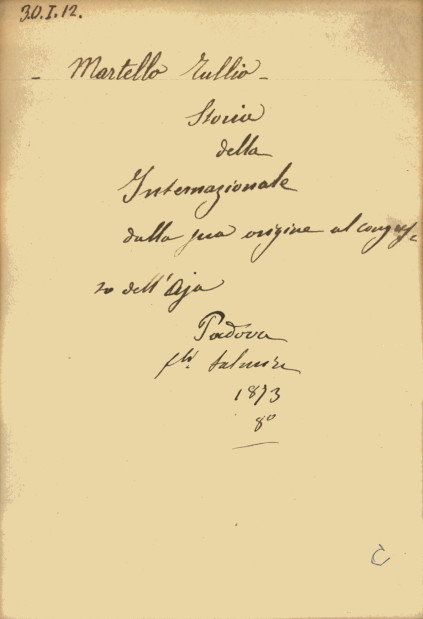 30.I.12.
- Martello Tullio -
Storia
della
Internazionale
dalla sua origine al congres-
so dell'Aja
Padova
fli. Salmin
1873
8º
C